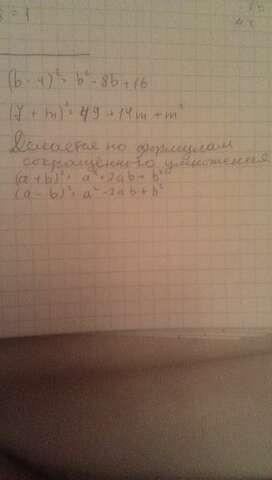 = 1
(b - 4)² = b² - 8b + 16
(7 + m)² = 49 + 14m + m²
Делается по формулам
сокращённого умножения
(a + b)² = a² + 2ab + b²
(a - b)² = a² - 2ab + b²